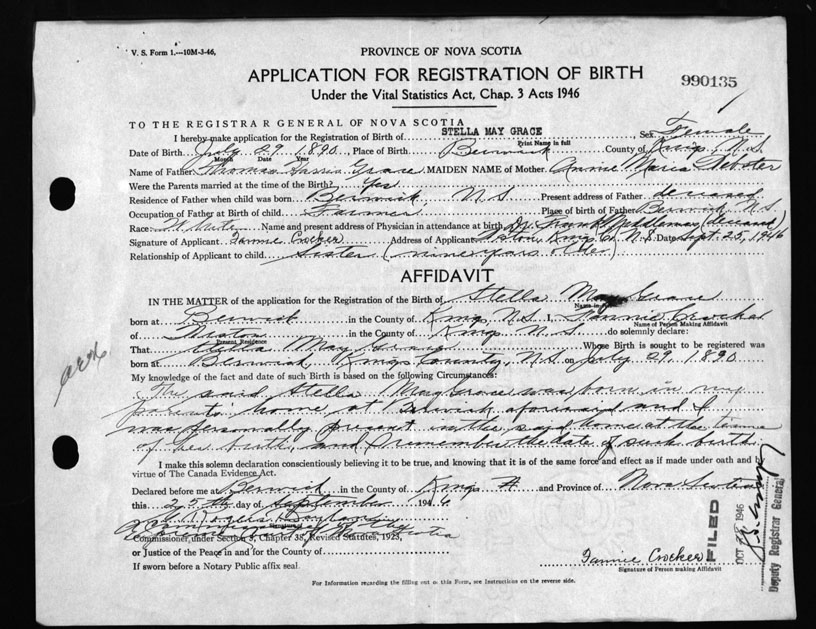 V. S. Form 1.—10M-3-46.
PROVINCE OF NOVA SCOTIA
APPLICATION FOR REGISTRATION OF BIRTH
990135
Under the Vital Statistics Act, Chap. 3 Acts 1946
TO THE REGISTRAR GENERAL OF NOVA SCOTIA
I hereby make application for the Registration of Birth of STELLA MAY GRACE Sex Female
Print Name in full
Date of Birth July 29 1890, Place of Birth Berwick County of Kings N.S.
Month Date Year
Name of Father Thomas Grace MAIDEN NAME of Mother Annie Maria Webster
Were the Parents married at the time of the Birth? Yes
Residence of Father when child was born Berwick, N.S. Present address of Father deceased
Occupation of Father at Birth of child Farmer Place of birth of Father Berwick N.S.
Race: White Name and present address of Physician in attendance at birth Dr. Frank Middlemas (deceased)
Signature of Applicant Fannie Crocker Address of Applicant Aston, Kings Co. N.S. Date Sept. 25, 1946
Relationship of Applicant to child Sister (nine years older)
AFFIDAVIT
IN THE MATTER of the application for the Registration of the Birth of Stella May Grace
Name in full
born at Berwick in the County of Kings N.S. I, Fannie Crocker
Name of Person Making Affidavit
of Aston in the County of Kings N.S. do solemnly declare:
Present Residence
That Stella May Grace Whose Birth is sought to be registered was
born at Berwick, Kings County, N.S. on July 29, 1890
My knowledge of the fact and date of such Birth is based on the following Circumstances:
The said Stella May Grace was born in my
parents home at Berwick aforesaid and I
was personally present in the said home at the time
of her birth and I remember the date of such birth.
I make this solemn declaration conscientiously believing it to be true, and knowing that it is of the same force and effect as if made under oath and by
virtue of The Canada Evidence Act.
Declared before me at Berwick in the County of Kings and Province of Nova Scotia
this 25th day of September 1946
A Commissioner of
Commissioner, under Section 3, Chapter 38, Revised Statutes, 1923,
or Justice of the Peace in and for the County of
If sworn before a Notary Public affix seal.
Fannie Crocker
Signature of Person making Affidavit
FILED
OCT 1946
Deputy Registrar General
For Information regarding the filling out of this Form, see Instructions on the reverse side.